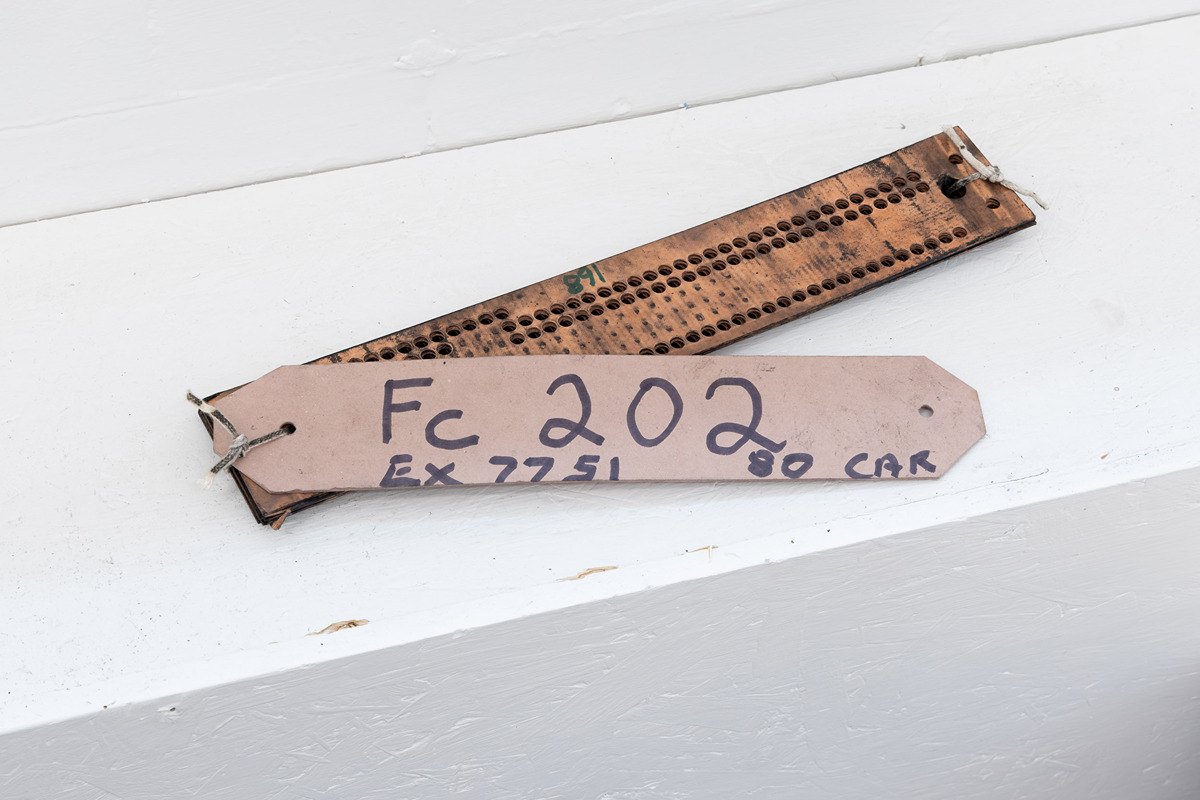 891
Fc 202
EX 7751 80 CAR